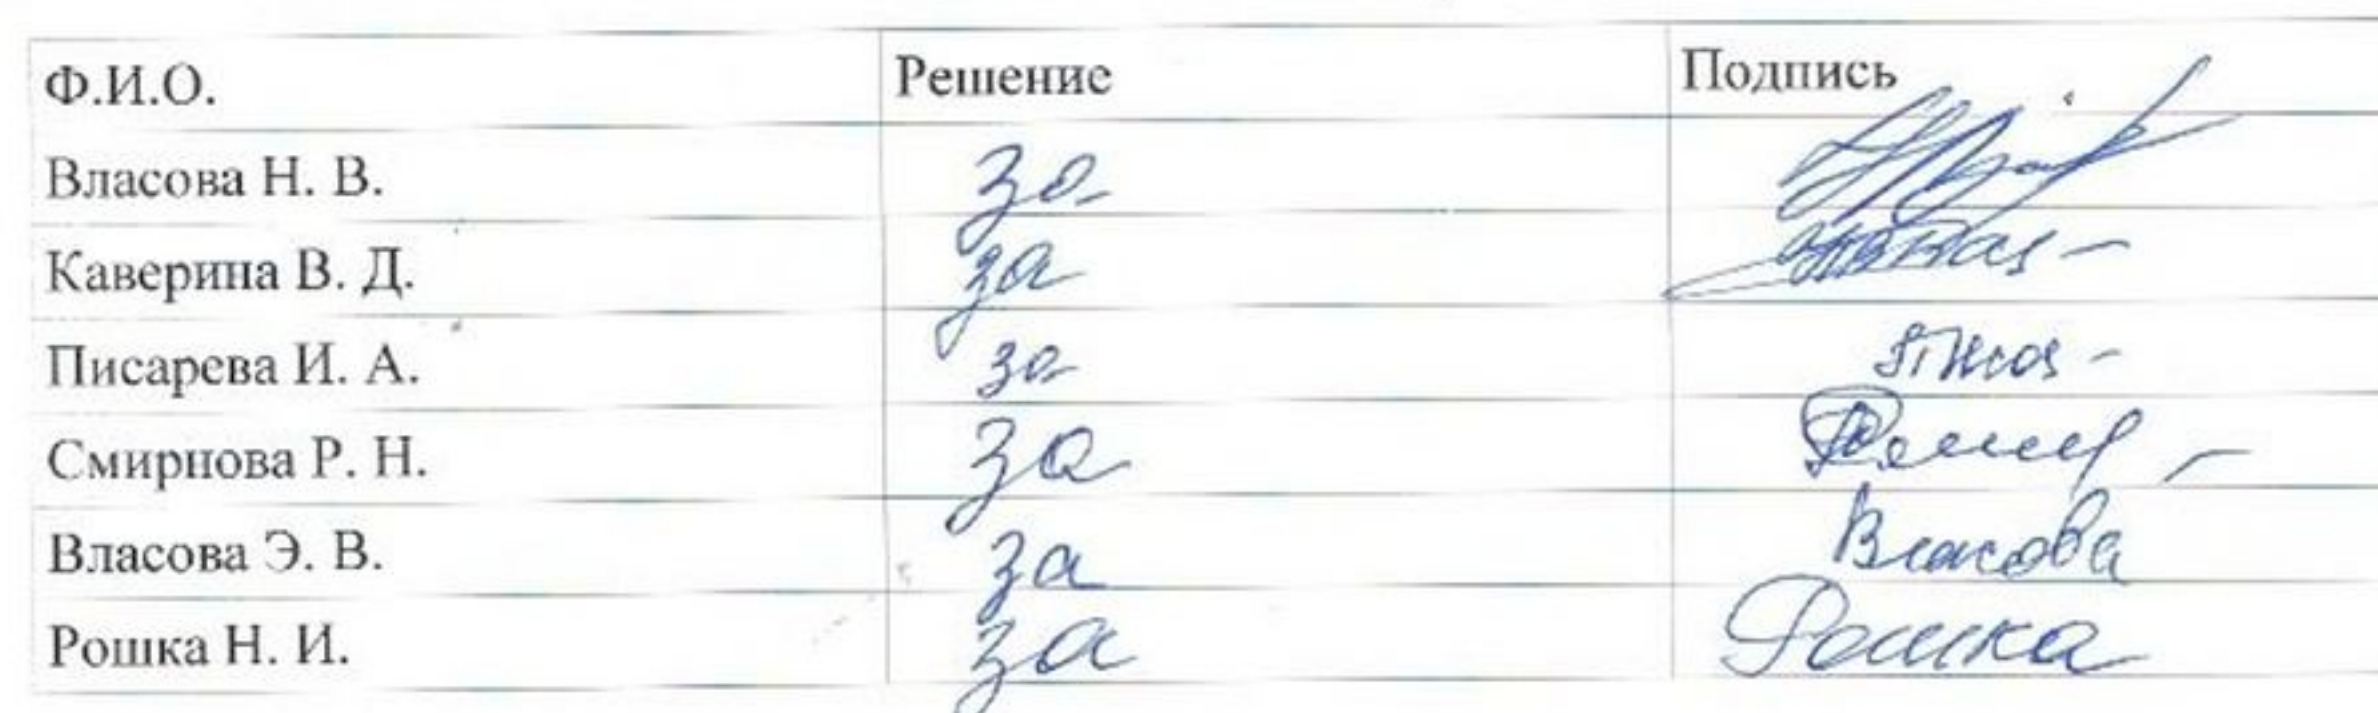 Ф.И.О. Решение Подпись
Власова Н. В. за
Каверина В. Д. за
Писарева И. А. за
Смирнова Р. Н. за
Власова Э. В. за Власова
Рошка Н. И. за Рошка